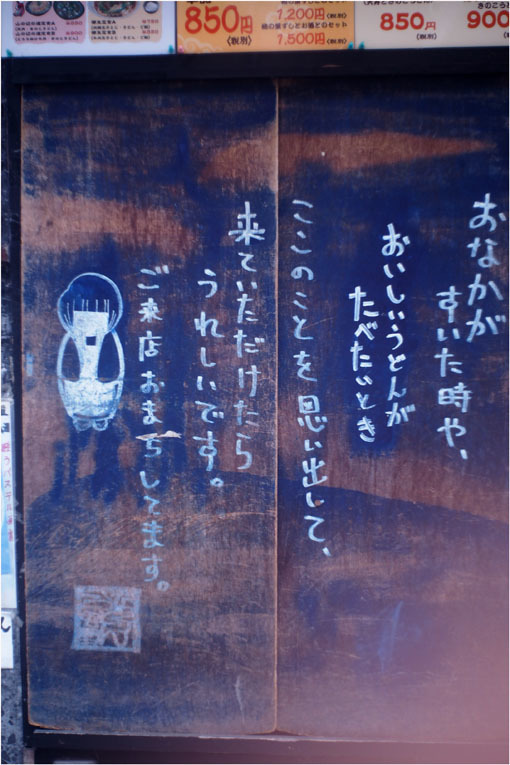 850円
〈税別〉
1,200円〈税別〉
緑の葉すしとお猪とのセット
1,500円〈税別〉
850円
〈税別〉
900
おなかが
すいた時や、
おいしいうどんが
たべたいとき
ここのことを思い出して、
来ていただけたら
うれしいです。
ご来店おまちしてます。